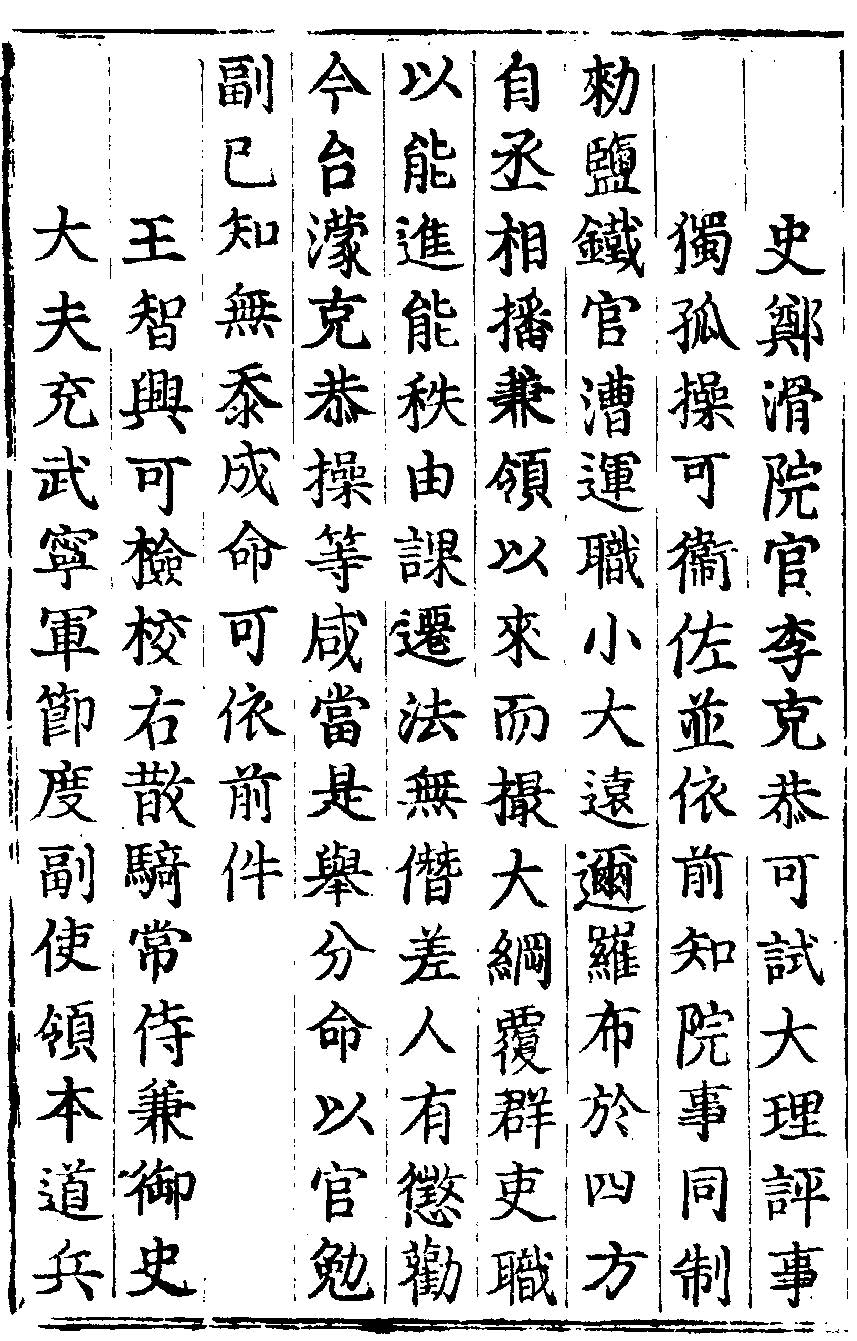 史鄭滑院官李克恭可試大理評事
獨孤操可衞佐並依前知院事同制
勑鹽鐵官漕運職小大遠邇羅布於四方
自丞相播兼領以來而撮大綱覆群吏職
以能進能秩由課遷法無僭差人有懲勸
今台濛克恭操等咸當是舉分命以官勉
副已知無忝成命可依前件
王智興可檢校右散騎常侍兼御史
大夫充武寧軍節度副使領本道兵